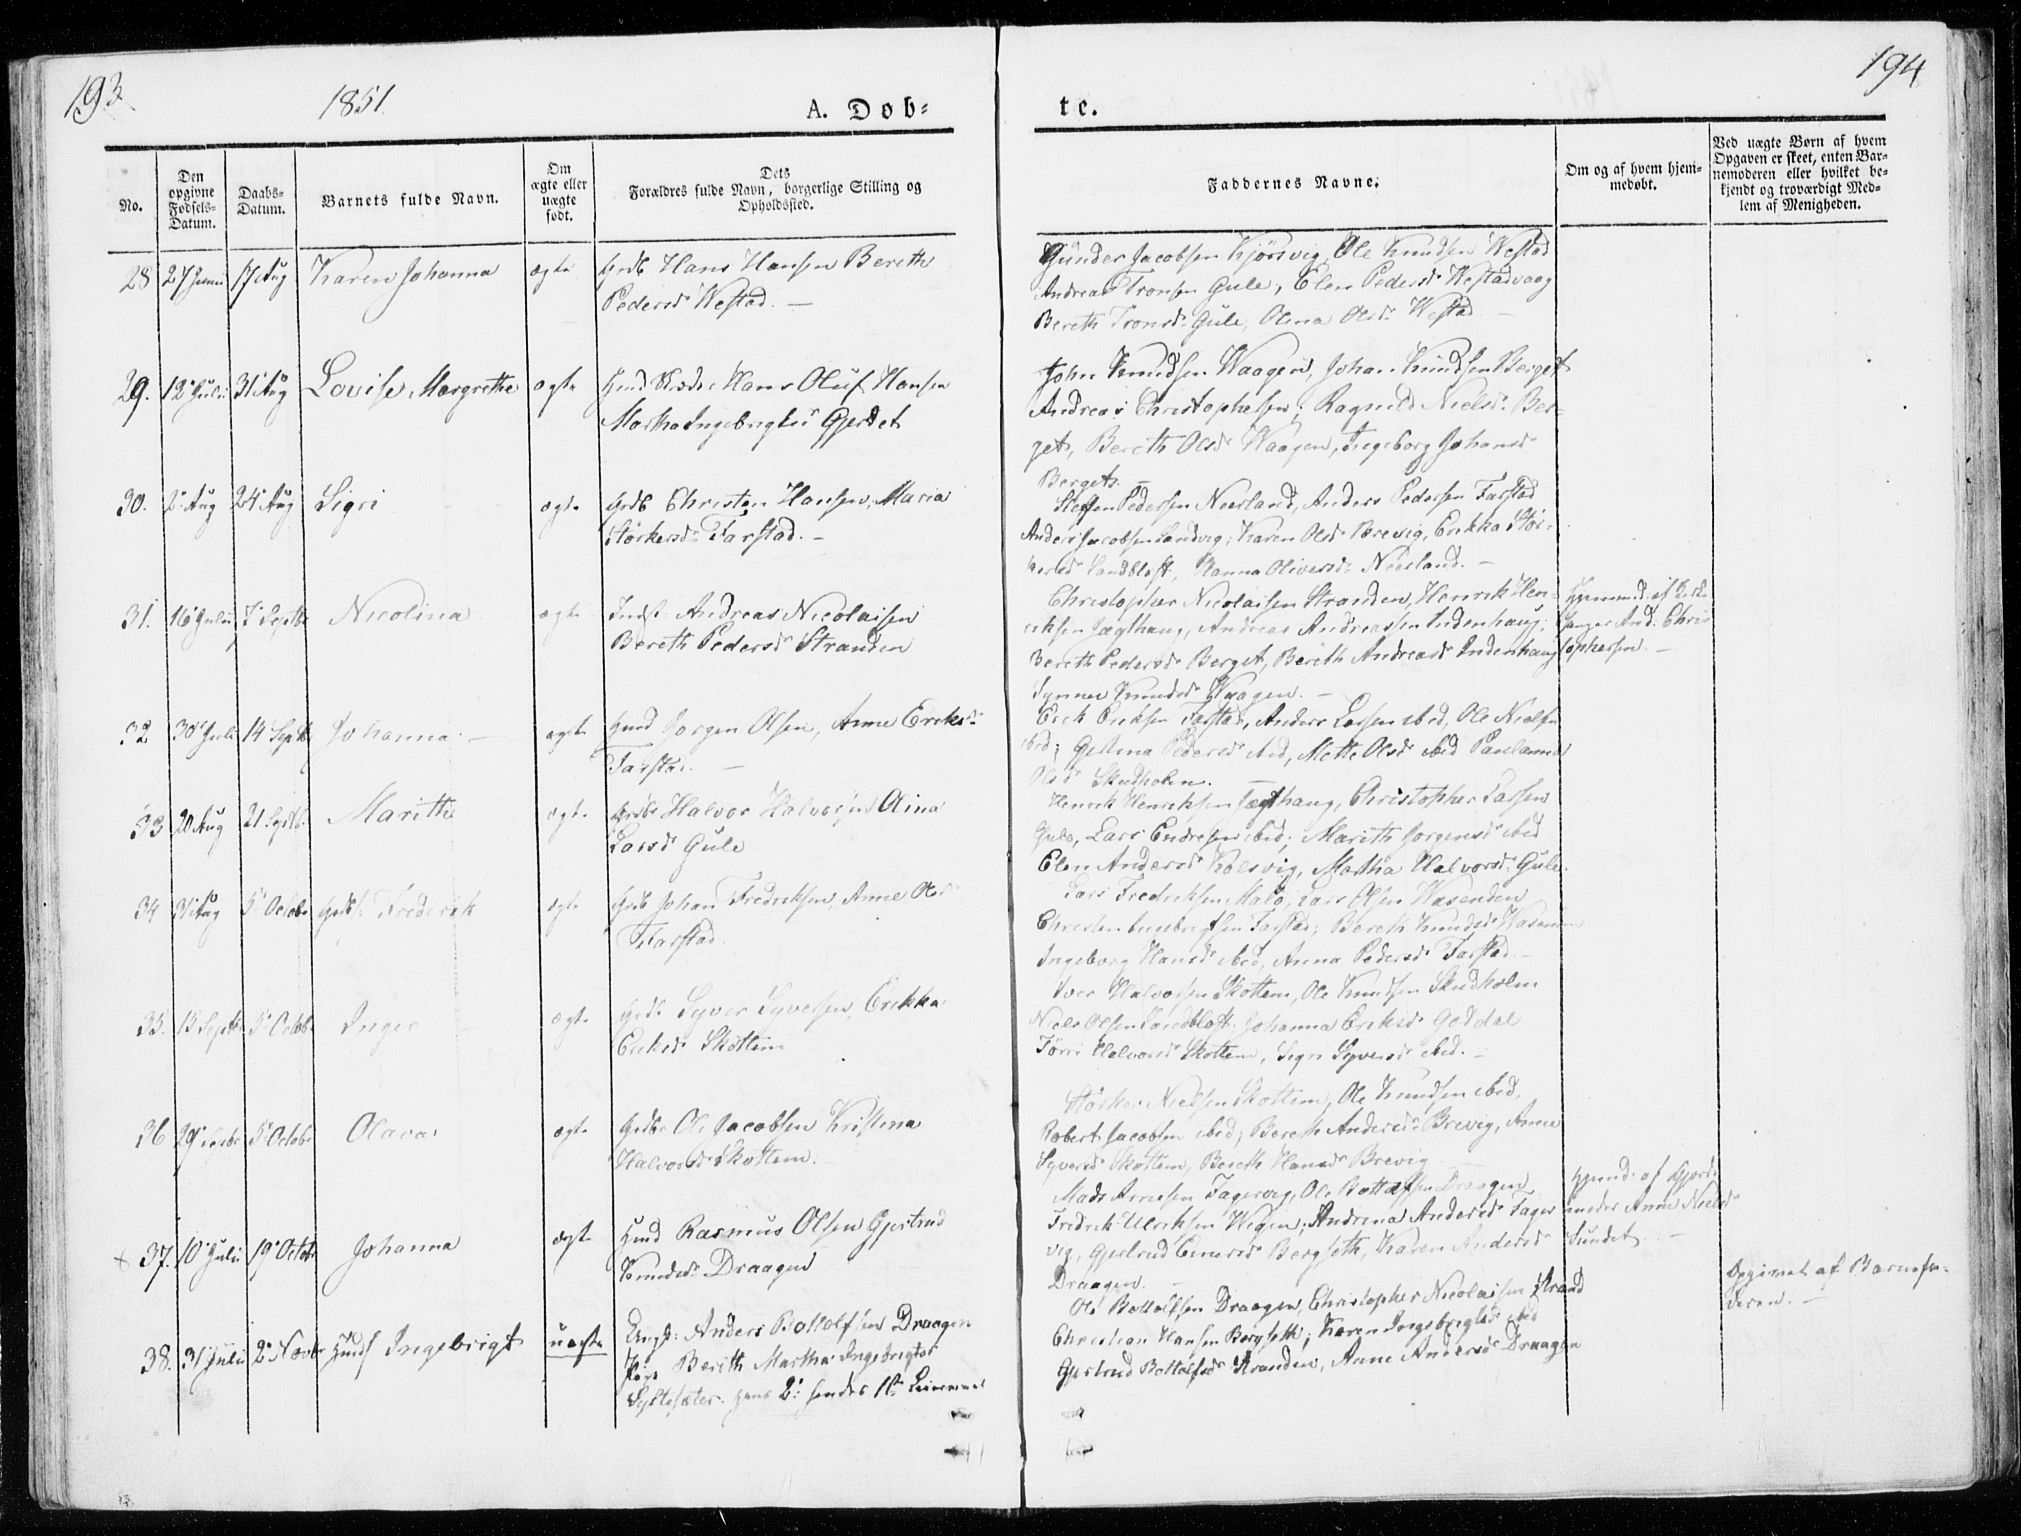 193
1851.
A. Døb-
te.
194
No.
Den opgivne Fødsels-Datum.
Daabs-Datum.
Barnets fulde Navn.
Om ægte eller uægte født.
Dets Forældres fulde Navn, borgerlige Stilling og Opholdssted.
Faddernes Navne.
Om og af hvem hjem-
medøbt.
Ved uægte Børn af hvem
Opgaven er skeet, enten Bar-
nemoderen eller hvilket be-
kjendt og troværdigt Med-
lem af Menigheden.
28 27 Junii 17 Aug Karen Johanna ægte Grdb Hans Hansen Bereth
Pedersd Westad. —
Gunder Jacobsen Kjørsvig, Ole Knudsen Westad
Andreas Tronsen Gule, Elen Pedersd Westadvaag
Bereth Tronsd Gule, Olina Olsd Westad —
29. 12 Juli 31 Aug Lovise Margrethe ægte Huusm Hans Oluf Hansen
Martha Ingebrigtsd Gjerdet
John Knudsen Waagen, Johan Knudsen Berget
Andreas Christophersen; Ragnild Nielsd Ber-
get, Bereth Olsd Waagen, Ingeborg Johansd
Berget. —
30. 2 Aug 24 Aug Sigri ægte Grdb Christen Hansen, Maria
Størkersd Farstad. —
Steffen Pedersen Neerland, Anders Pedersen Farstad
Anders Jacobsen Sandvig; Karen Olsd Brevig, Erikka Stør-
kersd Sandblost, Hanna Oliversd Neerland. —
31. 16 Juli 7 Septbr Nicolina ægte Indst Andreas Nicolaisen
Bereth Pedersd Stranden
Christopher Nicolaisen Stranden, Henrik Hen-
riksen Jægthaug, Andreas Andreassen Indenhaug;
Bereth Pedersd Berget, Bereth Andreasd Indenhaug
Synnev Knudsd Waagen. —
Hjemmed. af Kirke-
sanger And. Chris
tophersen. —
32 30 Juli 14 Septbr Johanna — ægte Huusm Jørgen Olsen, Anne Eriksd
Farstad. —
Erik Eriksen Farstad, Anders Larsen ibid, Ole Nielsen
ibid; Gjertina Pedersd ibid, Mette Olsd ibid Paulanna
Olsd Skudholm.
33 20 Aug 21 Septb. Marith ægte Grdb Halvor Halvorsen Olina
Larsd Gule
Henrik Henriksen Jægthaug, Christopher Larsen
Gule, Lars Endresen ibid; Marith Jørgensd ibid
Elen Andersd Kolsvig, Martha Halvorsd Gule.
34 31 Aug 5 Octobr Frederik ægte Grdb Johan Fredriksen, Anne Olsd
Farstad.
Lars Fredriksen Malø, Lars Olsen Wasenden
Christen Ingebrigtsen Farstad; Bereth Knudsd Wasenden
Ingeborg Hansd ibid, Anna Pedersd Farstad. —
35. 15 Septbr 5 Octobr Inger — ægte Grdb Syver Syversen, Erikka
Eriksd Skottem
Iver Halvorsen Skottem, Ole Knudsen Skudholm
Niels Olsen Sandblost; Johanna Eriksd Goddal
Tørri Halvorsd Skottem, Sigri Syversd ibid. —
36 29 Septbr 5 Octobr Olava ægte Grdb Ole Jacobsen Kristina
Halvorsd Skottem.
Størker Nielsen Skottem, Ole Knudsen ibid,
Robert Jacobsen ibid; Bereth Andersd Brevig, Anne
Syversd Skottem, Bereth Hansd Brevig
+ 37. 10 Juli 19 Octobr Johanna ægt. Huusm Rasmus Olsen Gjertrud
Knudsd Draagen
Mads Arnesen Fagervig, Ole Bottolfsen Draagen
Fredrik Ulriksen Wigen; Andrina Andersd Fager
vig, Gjertrud Einersd Bergseth, Karen Andersd
Draagen. —
Hjemd: af Gjord-
moder Anne Nielsd
Sundet. —
38. 31 Juli 2 Novbr Ingebrigt uægte Ungk: Anders Bottolfsen Draagen
Pige Berith Martha Ingebrigtsd
Syltesæter. Hans 2: hendes 1ste Leiermaal
Ole Bottolfsen Draagen, Christopher Nicolaisen Strand
Christian Hansen Bergseth; Karen Ingebrigtsd ibid
Gjertrud Bottolfsd Stranden, Anne Andersd Draagen
Opgivet af Barnefa-
deren. —